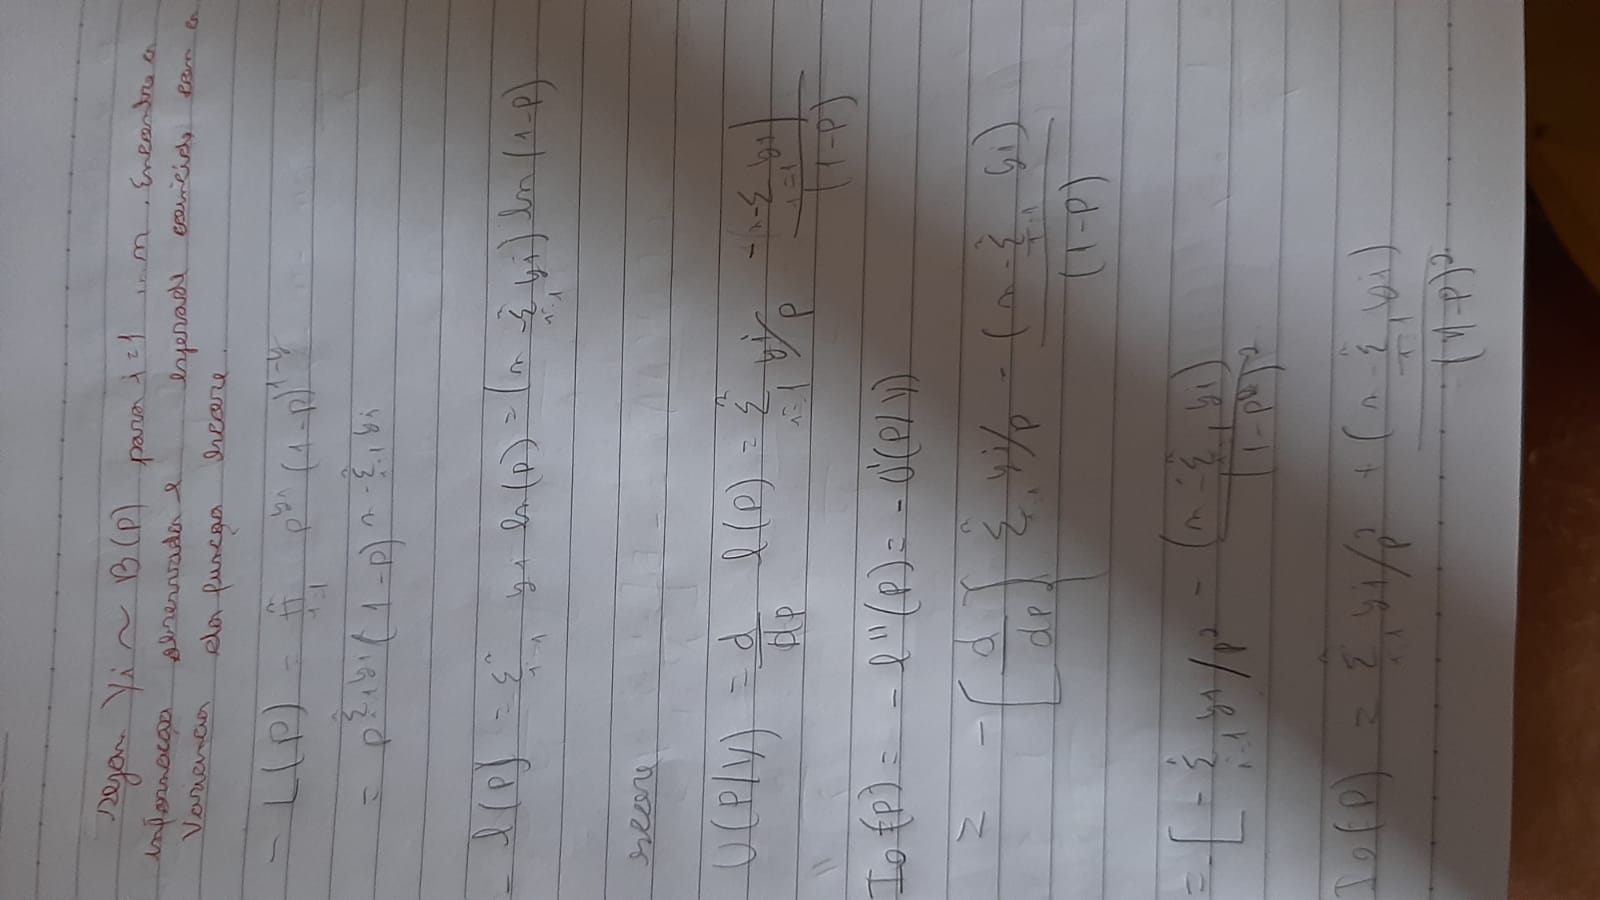 Sejam Yi ~ B(p) para i = 1 ... n. Encontre a
informação observada e esperada coincide com a
Variancia da função escore.
- L(p) = ∏ⁿᵢ₌₁ p^yi (1-p)^1-y
= p^Σⁿᵢ₌₁ yi (1-p)^n-Σⁿᵢ₌₁ yi
- l(p) = Σⁿᵢ₌₁ yi ln(p) = (n - Σⁿᵢ₌₁ yi) ln(1-p)
escore
U(p/y) = d/dp l(p) = Σⁿᵢ₌₁ yi/p - (n - Σᵢ₌₁ yi)/(1-p)
Io(p) = - l''(p) = - U'(p/y)
= - [d/dp] Σⁿᵢ₌₁ yi/p - (n - Σⁿᵢ₌₁ yi)/(1-p)
= - [ - Σⁿᵢ₌₁ yi/p² - (n - Σⁿᵢ₌₁ yi)/(1-p)²
Io(p) = Σⁿᵢ₌₁ yi/p² + (n - Σⁿᵢ₌₁ yi)/(1-p)²